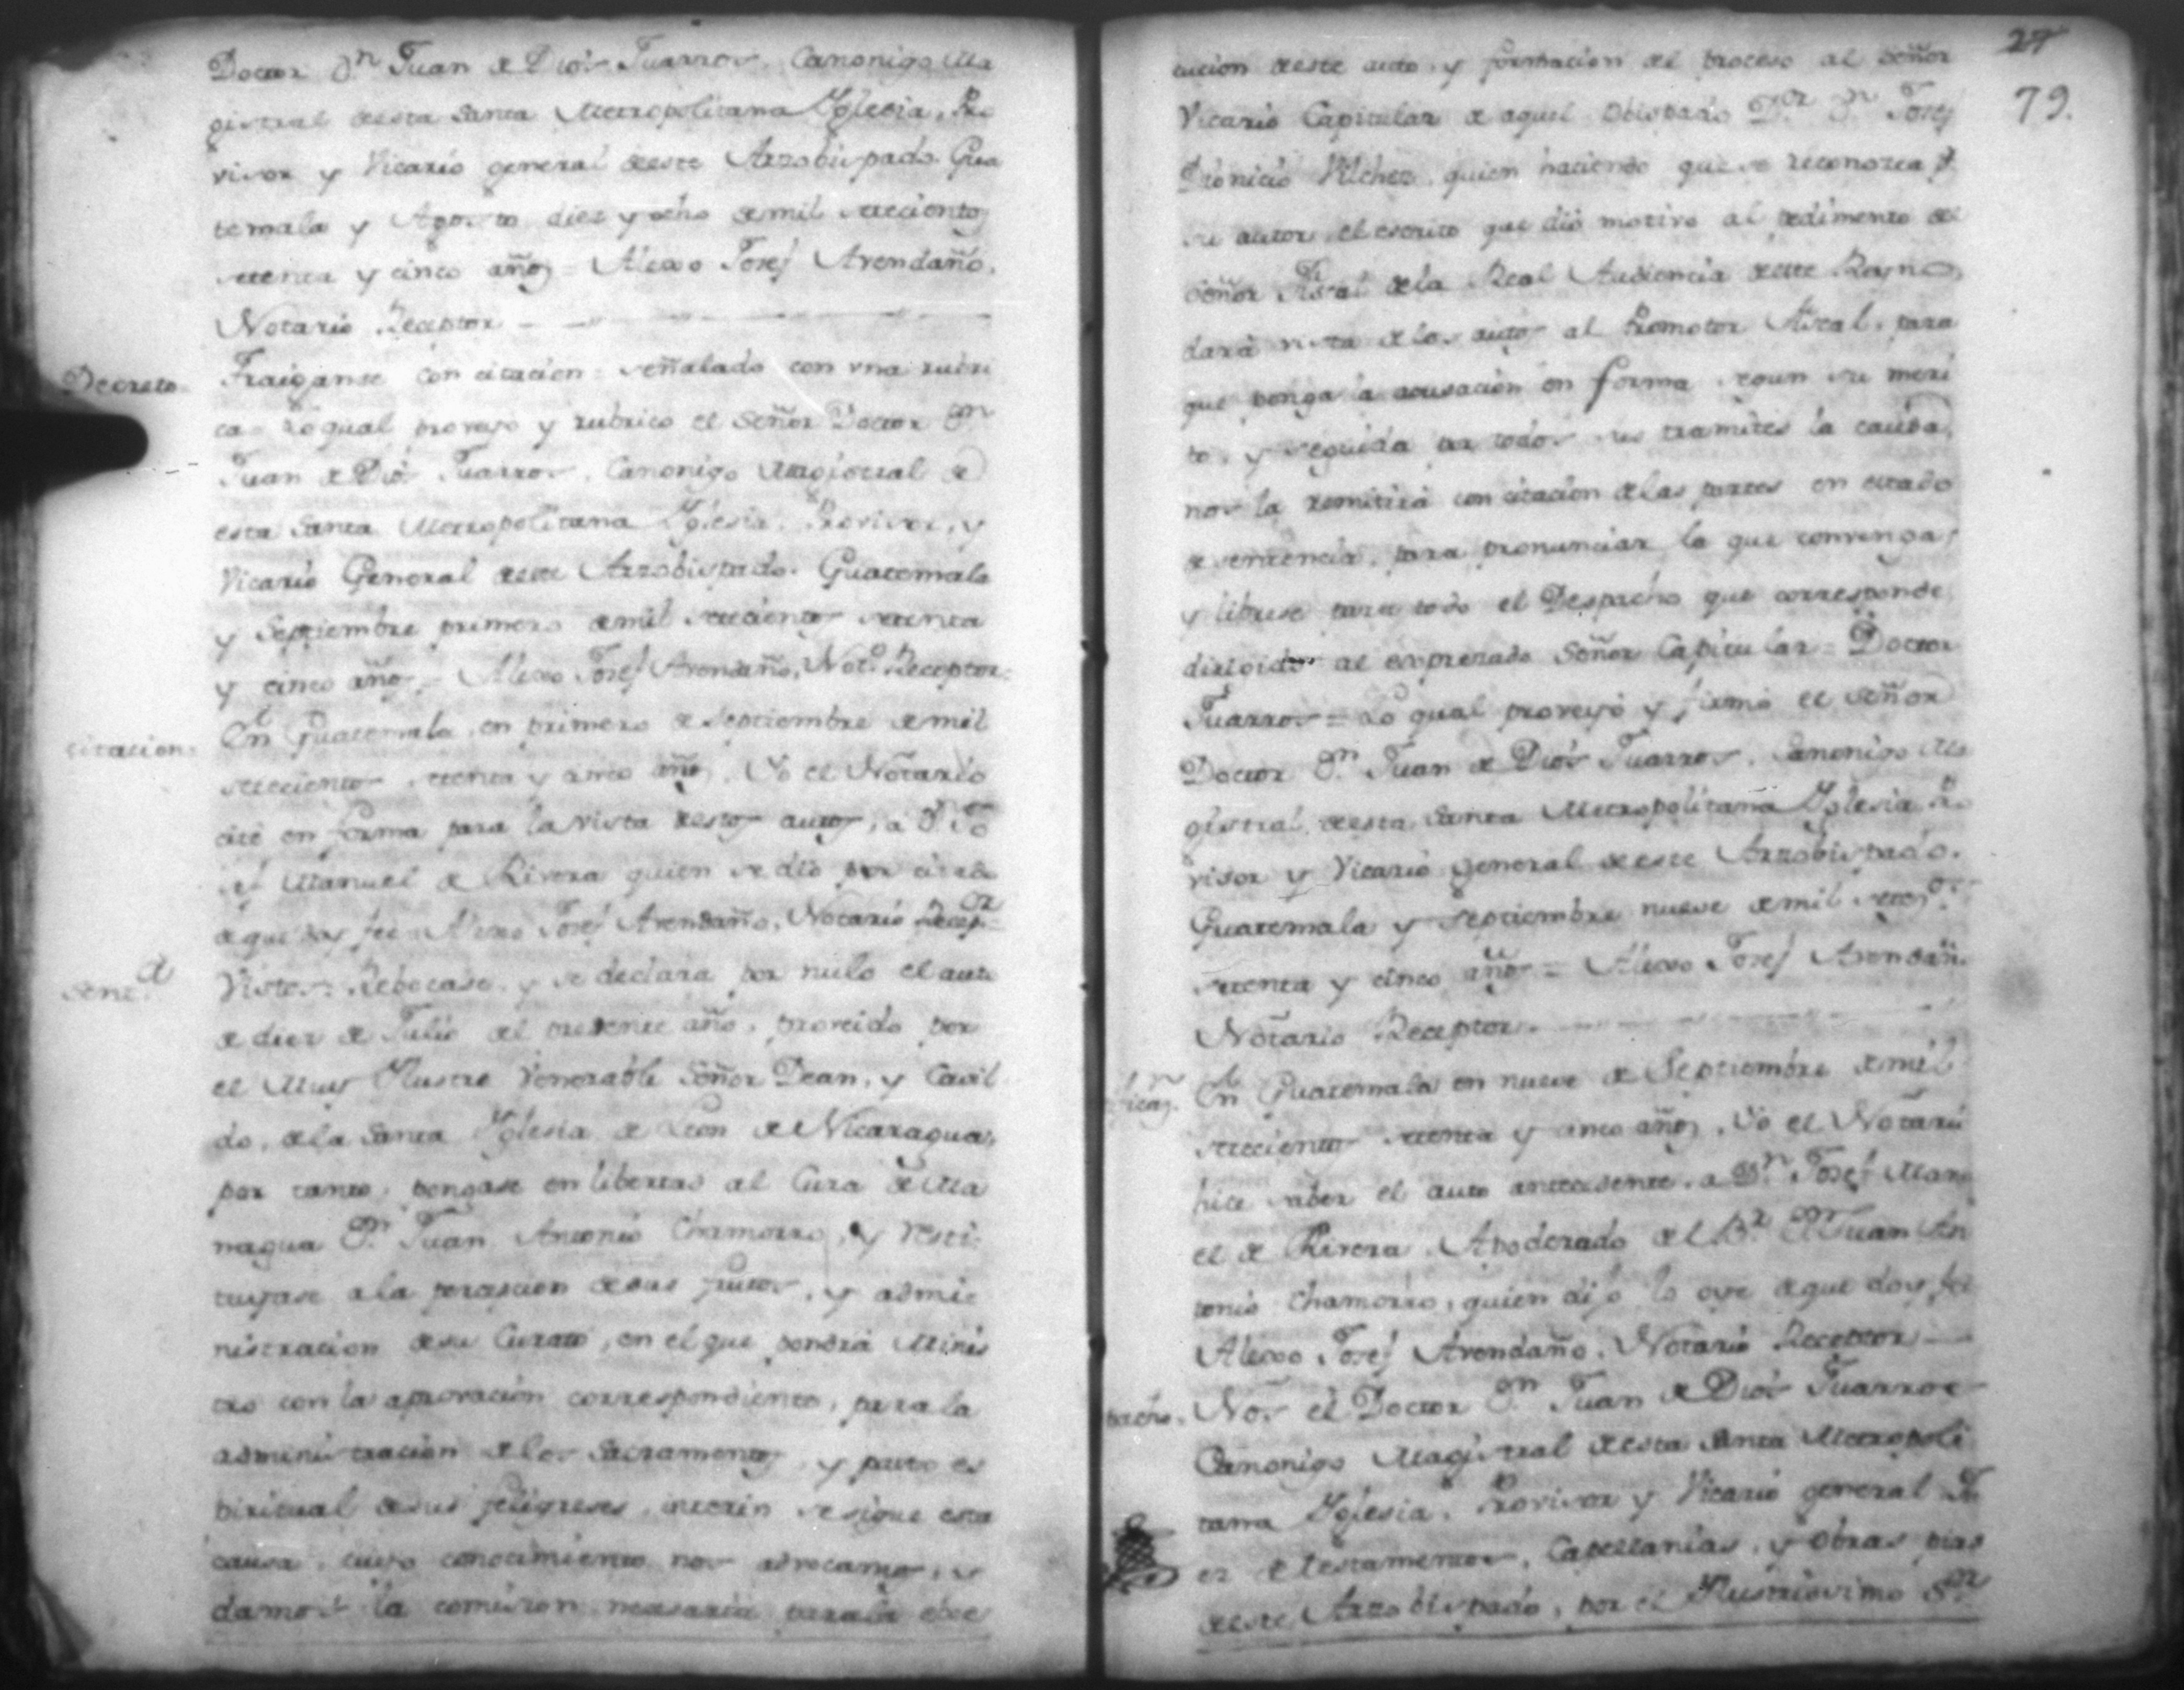 Doctor Dn Juan de Dios Juarros, Canonigo Ma
gistral desta Santa Metropolitana Yglesia, Pro
visor y Vicario general deeste Arzobispado. Gua
temala y Agosto diez y ocho demil setecientos
setenta y cinco años = Alexo Josef Avendaño,
Notario Receptor
Decreto= Traiganse con citacion = señalado con vna rubri
ca= Lo qual proveyo y rubrico el Señor Doctor Dn
Juan de Dios Juarros, Canonigo Magistral de
esta Santa Metropolitana Yglesia, Provisor, y
Vicario General deeste Arzobispado. Guatemala
y Septiembre primero demil setecientos setenta
y cinco años = Alexo Josef Avendaño, Noto Receptor=
citacion= En Guatemala, en primero de Septiembre demil
setecientos setenta y cinco años, Yo el Notario
cité en forma para la vista destos autos, a D. Jo
sef Manuel de Rivera quien se dio por citado
de que doy fee= Alexo Josef Avendaño, Notario Recepor=
Senta Vistos: Rebocase, y se declara por nulo el auto
de diez de Julio del presente año, proveido por
el Muy Ylustre Venerable Señor Dean, y Cavil
do, dela Santa Yglesia de Leon de Nicaragua,
por tanto, pongase en libertad al Cura de Ma
nagua Dn Juan Antonio Chamorro, y resti
tuyase ala persepcion desus frutos, y admi=
nistracion desu Curato, en el que pondrá Minis
tro con la aprovación correspondiente, para la
administracion delos Sacramentos, y pasto es
piritual desus feligreses, interin se sigue esta
causa, cuyo conocimiento nos advocamos, y
damos la comision nesesaria para la ejec
27
79.
cucion deeste auto, y formacion del proceso al Señor
Vicario Capitular de aquel Obispado Dor Dn Josef
Dionicio Vilches, quien haciendo que se reconozca p.
su autor, el escrito que dió motivo al pedimento del
Señor Fiscal dela Real Audiencia deeste Reyno,
dará vista delos autos al Promotor Fiscal, para
que ponga la acusacion en forma segun su meri
to, y seguida por todos sus tramites la causa,
nos la remitirá con citacion delas partes en estado
de sentencia, para pronunciar la que convenga,
y librese para todo el Despacho que corresponde
dirigido al expresado Señor Capitular = Doctor
Juarros = Lo qual proveyó y firmó el Señor
Doctor Dn Juan de Dios Juarros, Canonigo Ma
gistral deesta Santa Metropolitana Yglesia Pro
visor y Vicario general deeste Arzobispado.
Guatemala y Septiembre nueve demil setecos
setenta y cinco años = Alexo Josef Avendaño
Notario Receptor.
En Guatemala en nueve de Septiembre demil
setecientos setenta y cinco años, Yo el Notario
hice saber el auto antecedente, a Dn Josef Manu
el de Rivera, Apoderado del Br Dn Juan An
tonio Chamorro, quien dijo lo oye deque doy fee
Alexo Josef Avendaño. Notario Receptor
pacho= Nos el Doctor Dn Juan de Dios Juarros
Canonigo Magistral deesta Santa Metropoli
tana Yglesia, Provisor y Vicario general Ju
ez de testamentos, Capellanias, y obras pias
deeste Arzobispado, por el Ylustrisimo Sor